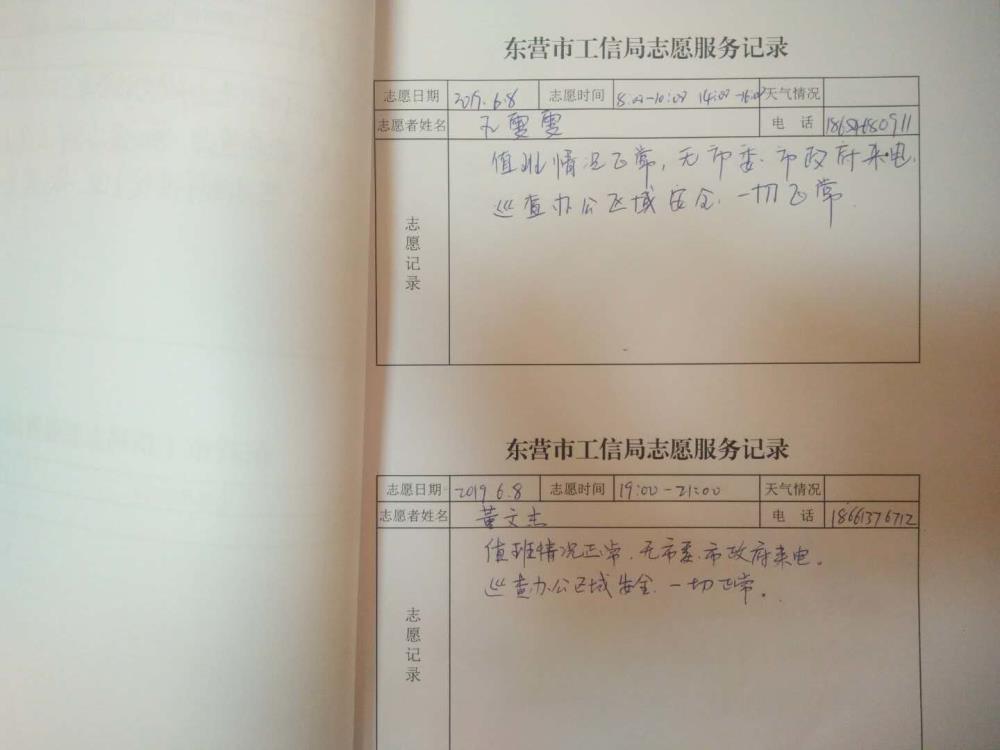 东营市工信局志愿服务记录
志愿日期 2019.6.8 志愿时间 8:00-10:00 14:00-16:00 天气情况
志愿者姓名 孔雯雯 电话
值班情况正常,无市委、市政府来电.
巡查办公区域安全.一切正常.
志愿记录
东营市工信局志愿服务记录
志愿日期 2019 6.8 志愿时间 19:00-21:00 天气情况
志愿者姓名 董文杰 电话 18661376712
值班情况正常.无市委.市政府来电。
巡查办公区域安全.一切正常。
志愿记录